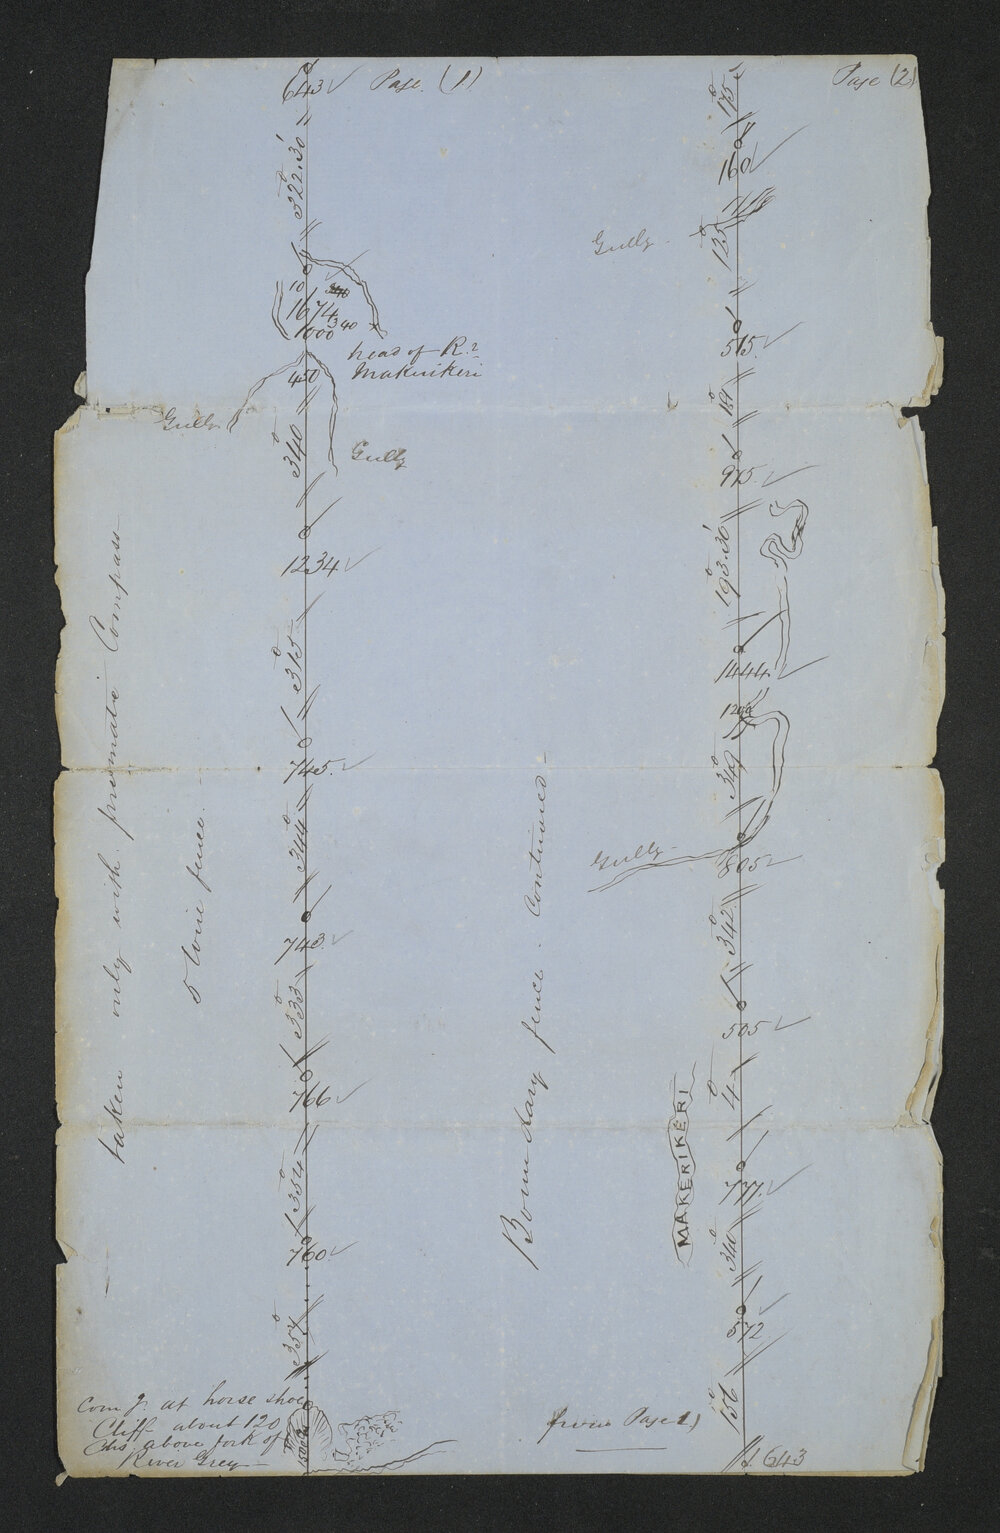 Page (1)
643
322.30'
10
1674
340
1000
head of R.
Makirikeri
450
Gully
Gully
340°
1234
315°
745
344°
743
333°
766
354°
760
357°
Comg. at horse shoe
Cliff about 120
Chs. above fork of
River Grey
taken only with prismatic Compass
5 Wire fence
Page (2)
175°
160
Gully
125°
515
189°
975
193.30'
1444
1200
349°
Gully
805
342°
505
4°
737
MAKERIKERI
340°
572
156°
643
from Page 1)
Boundary fence Continued